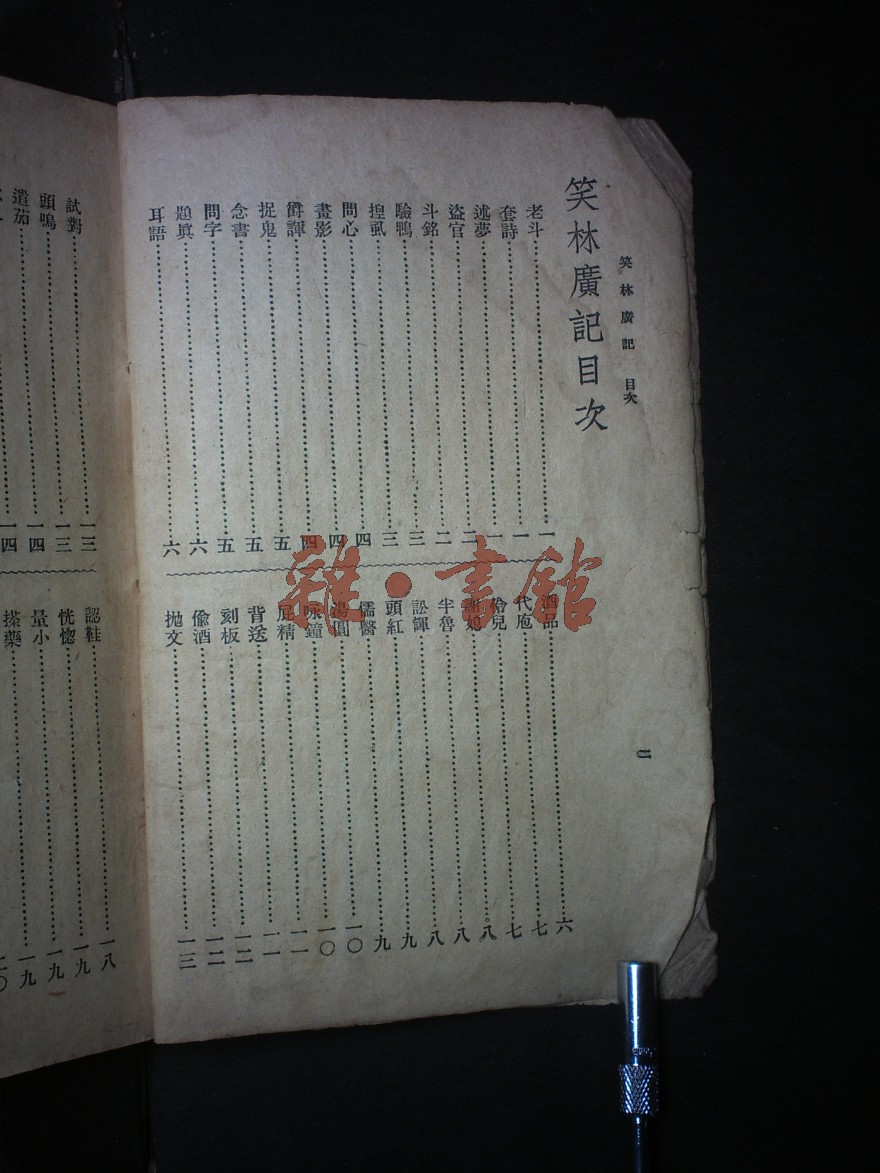 笑林廣記 目次
二
笑林廣記目次
老斗 一
套詩 一
述夢 一
盜官 二
斗銘 二
驗鴨 三
揑虱 三
問心 四
畫影 四
爵譚 四
捉鬼 五
念書 五
問字 五
題眞 六
耳語 六
酒品 六
代庖 七
兒 七
八
半魯 八
訟譚 八
頭紅 九
儒醫 九
湯圓 一〇
咏鐘 一〇
屁精 一一
背送 一一
刻板 一二
偸酒 一二
拋文 一三
試對 一三
頭鳴 一三
遣茄 一四
一四
韶鞋 一八
恍惚 一九
量小 一九
搽藥 一九
雜·書館